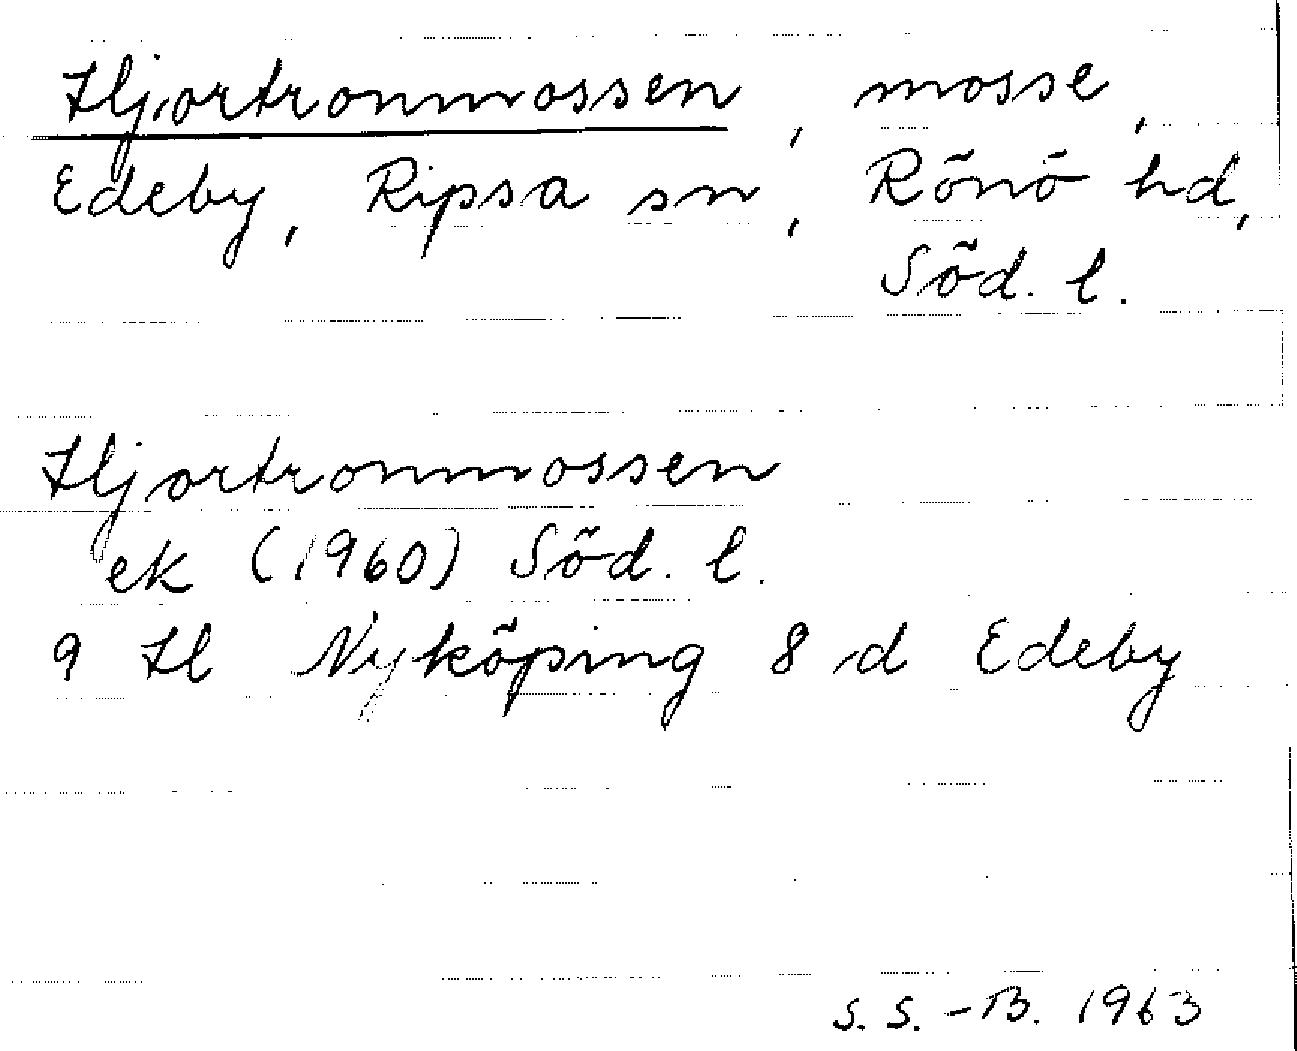 Hjortronmossen, mosse,
Edeby, Ripsa sn, Rönö hd,
Söd. l.
Hjortronmossen
ek (1960) Söd. l.
9 H Nyköping 8 d Edeby
S. S. -B. 1963